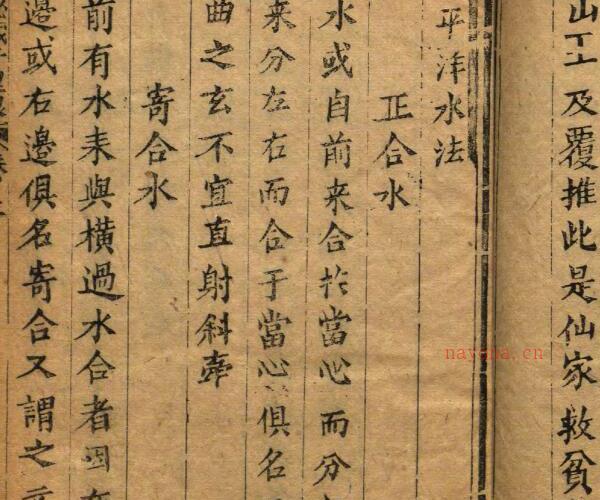 山工及覆推此是仙家救貧
平洋水法
正合水
水或自前來合扵當心而分
來分左右而合于當心俱名
曲之玄不宜直射斜牽
寄合水
前有水来與橫過水合者因
邊或右邊俱名寄合又謂之
nayona.cn